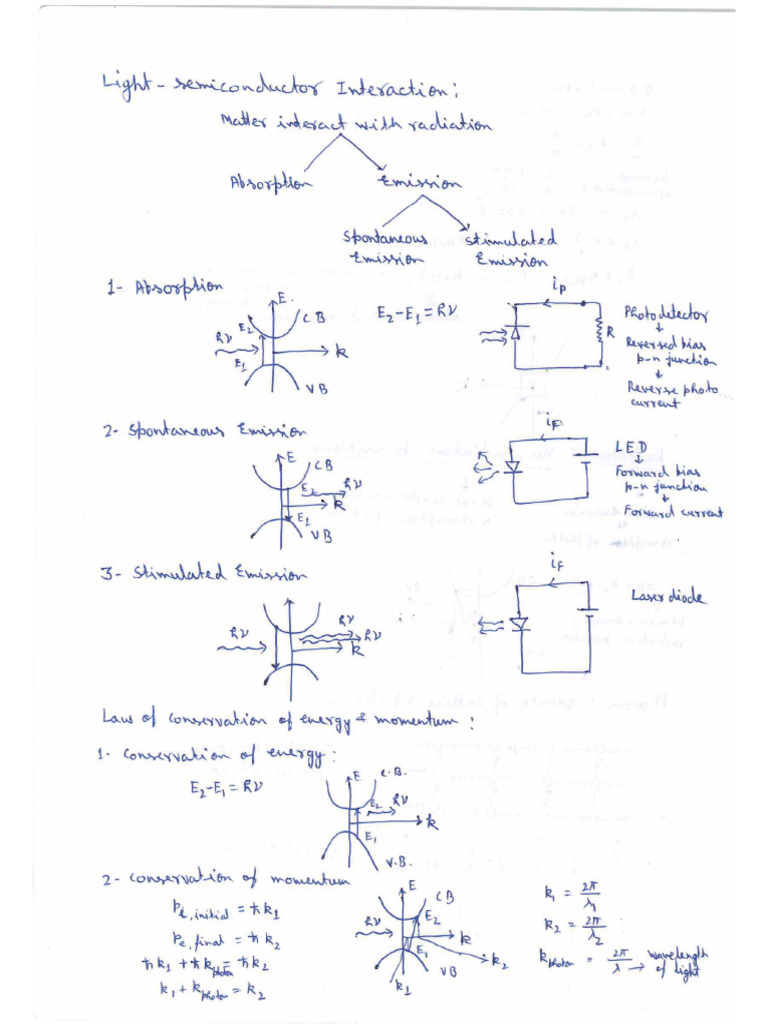 Light-semiconductor Interaction:
Matter interact with radiation
Absorption Emission
Spontaneous Emission
Stimulated Emission
1- Absorption
E
CB
E2
hν
E1
k
VB
E2-E1 = hν
iP
R
Photodetector
Reversed bias
p-n junction
Reverse photo
current
2- Spontaneous Emission
E
CB
E2
hν
k
E1
VB
iF
LED
Forward bias
p-n junction
Forward current
3- Stimulated Emission
hν
hν
hν
k
iF
Laser diode
Law of conservation of energy & momentum:
1- Conservation of energy:
E2-E1 = hν
E
C.B.
E2
hν
k
E1
V.B.
2- Conservation of momentum
Pe,initial = ħk1
Pe,final = ħk2
ħk1 + ħkphoton = ħk2
k1 + kphoton = k2
E
CB
hν
E2
k
E1
k2
VB
k1
k1 = 2π/λ1
k2 = 2π/λ2
kphoton = 2π/λ → wavelength of light